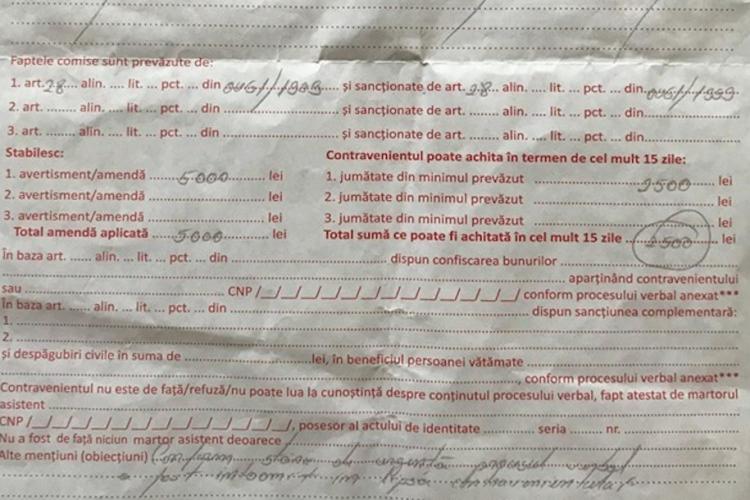 Faptele comise sunt prevăzute de:
1. art. 28 alin. .... lit. ... pct. ... din OUG 1/1999 și sancționate de art. 28 alin. .... lit. ... pct. ... din OUG 1/1999
2. art. ........ alin. .... lit. ... pct. ... din .............................. și sancționate de art. ........ alin. .... lit. ... pct. ... din..........................
3. art. ........ alin. .... lit. ... pct. ... din .............................. și sancționate de art. ........ alin. .... lit. ... pct. ... din..........................
Stabilesc: Contravenientul poate achita în termen de cel mult 15 zile:
1. avertisment/amendă 5000 lei 1. jumătate din minimul prevăzut 2500 lei
2. avertisment/amendă .............................. lei 2. jumătate din minimul prevăzut .............................. lei
3. avertisment/amendă .............................. lei 3. jumătate din minimul prevăzut .............................. lei
Total amendă aplicată 5000 lei Total sumă ce poate fi achitată în cel mult 15 zile 2500 lei
În baza art. ...... alin. ... lit. ... pct. ... din .............................. dispun confiscarea bunurilor ..............................
.............................. aparținând contravenientului
sau .............................. CNP /_/_/_/_/_/_/_/_/_/_/_/_/_/ conform procesului verbal anexat***
În baza art. ...... alin. ... lit. ... pct. ... din .............................. dispun sancțiunea complementară:
1. ..............................
2. ..............................
și despăgubiri civile în suma de ..............................lei, în beneficiul persoanei vătămate ..............................
.............................., conform procesului verbal anexat***
Contravenientul nu este de față/refuză/nu poate lua la cunoștință despre conținutul procesului verbal, fapt atestat de martorul
asistent ..............................
CNP /_/_/_/_/_/_/_/_/_/_/_/_/_/, posesor al actului de identitate .............. seria ........ nr. ..............
Nu a fost de față niciun martor asistent deoarece
Alte mențiuni (obiecțiuni) stare de urgență procesul verbal
a fost întocmit în lipsa contravenientului